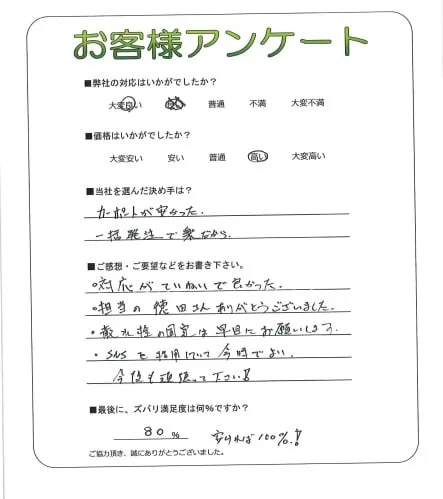 お客様アンケート
■弊社の対応はいかがでしたか？
大変良い 良い 普通 不満 大変不満
■価格はいかがでしたか？
大変安い 安い 普通 高い 大変高い
■当社を選んだ決め手は？
カーポートが安かった.
一括発注で楽だから.
■ご感想・ご要望などをお書き下さい。
・対応がていねいで良かった.
・担当の徳田さんありがとうございました.
・散水栓の固定は早目にお願いします.
・SNSを活用していて今時でよい.
今後も頑張って下さい!!
■最後に、ズバリ満足度は何%ですか？
80% 安ければ100%!!
ご協力頂き、誠にありがとうございました。